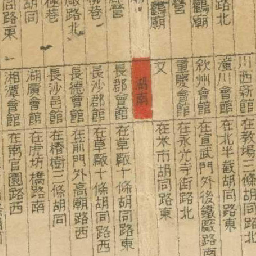 路北
胡同
路東
川西新館 在教場三條胡同
潼川會館 在北半截胡同路東
敘州會館 在宣武門外後鐵廠路南
重慶會館 在永光寺街路北
又 在米市胡同路東
湖南
長郡會館 在草廠十條胡同路東
長沙郡館 在草廠十條胡同路西
長德會館 在前門外高廟路西
長沙邑館 在椿樹三條胡同
湖廣會館 在虎坊橋路南
湘潭會館 在南官園路西